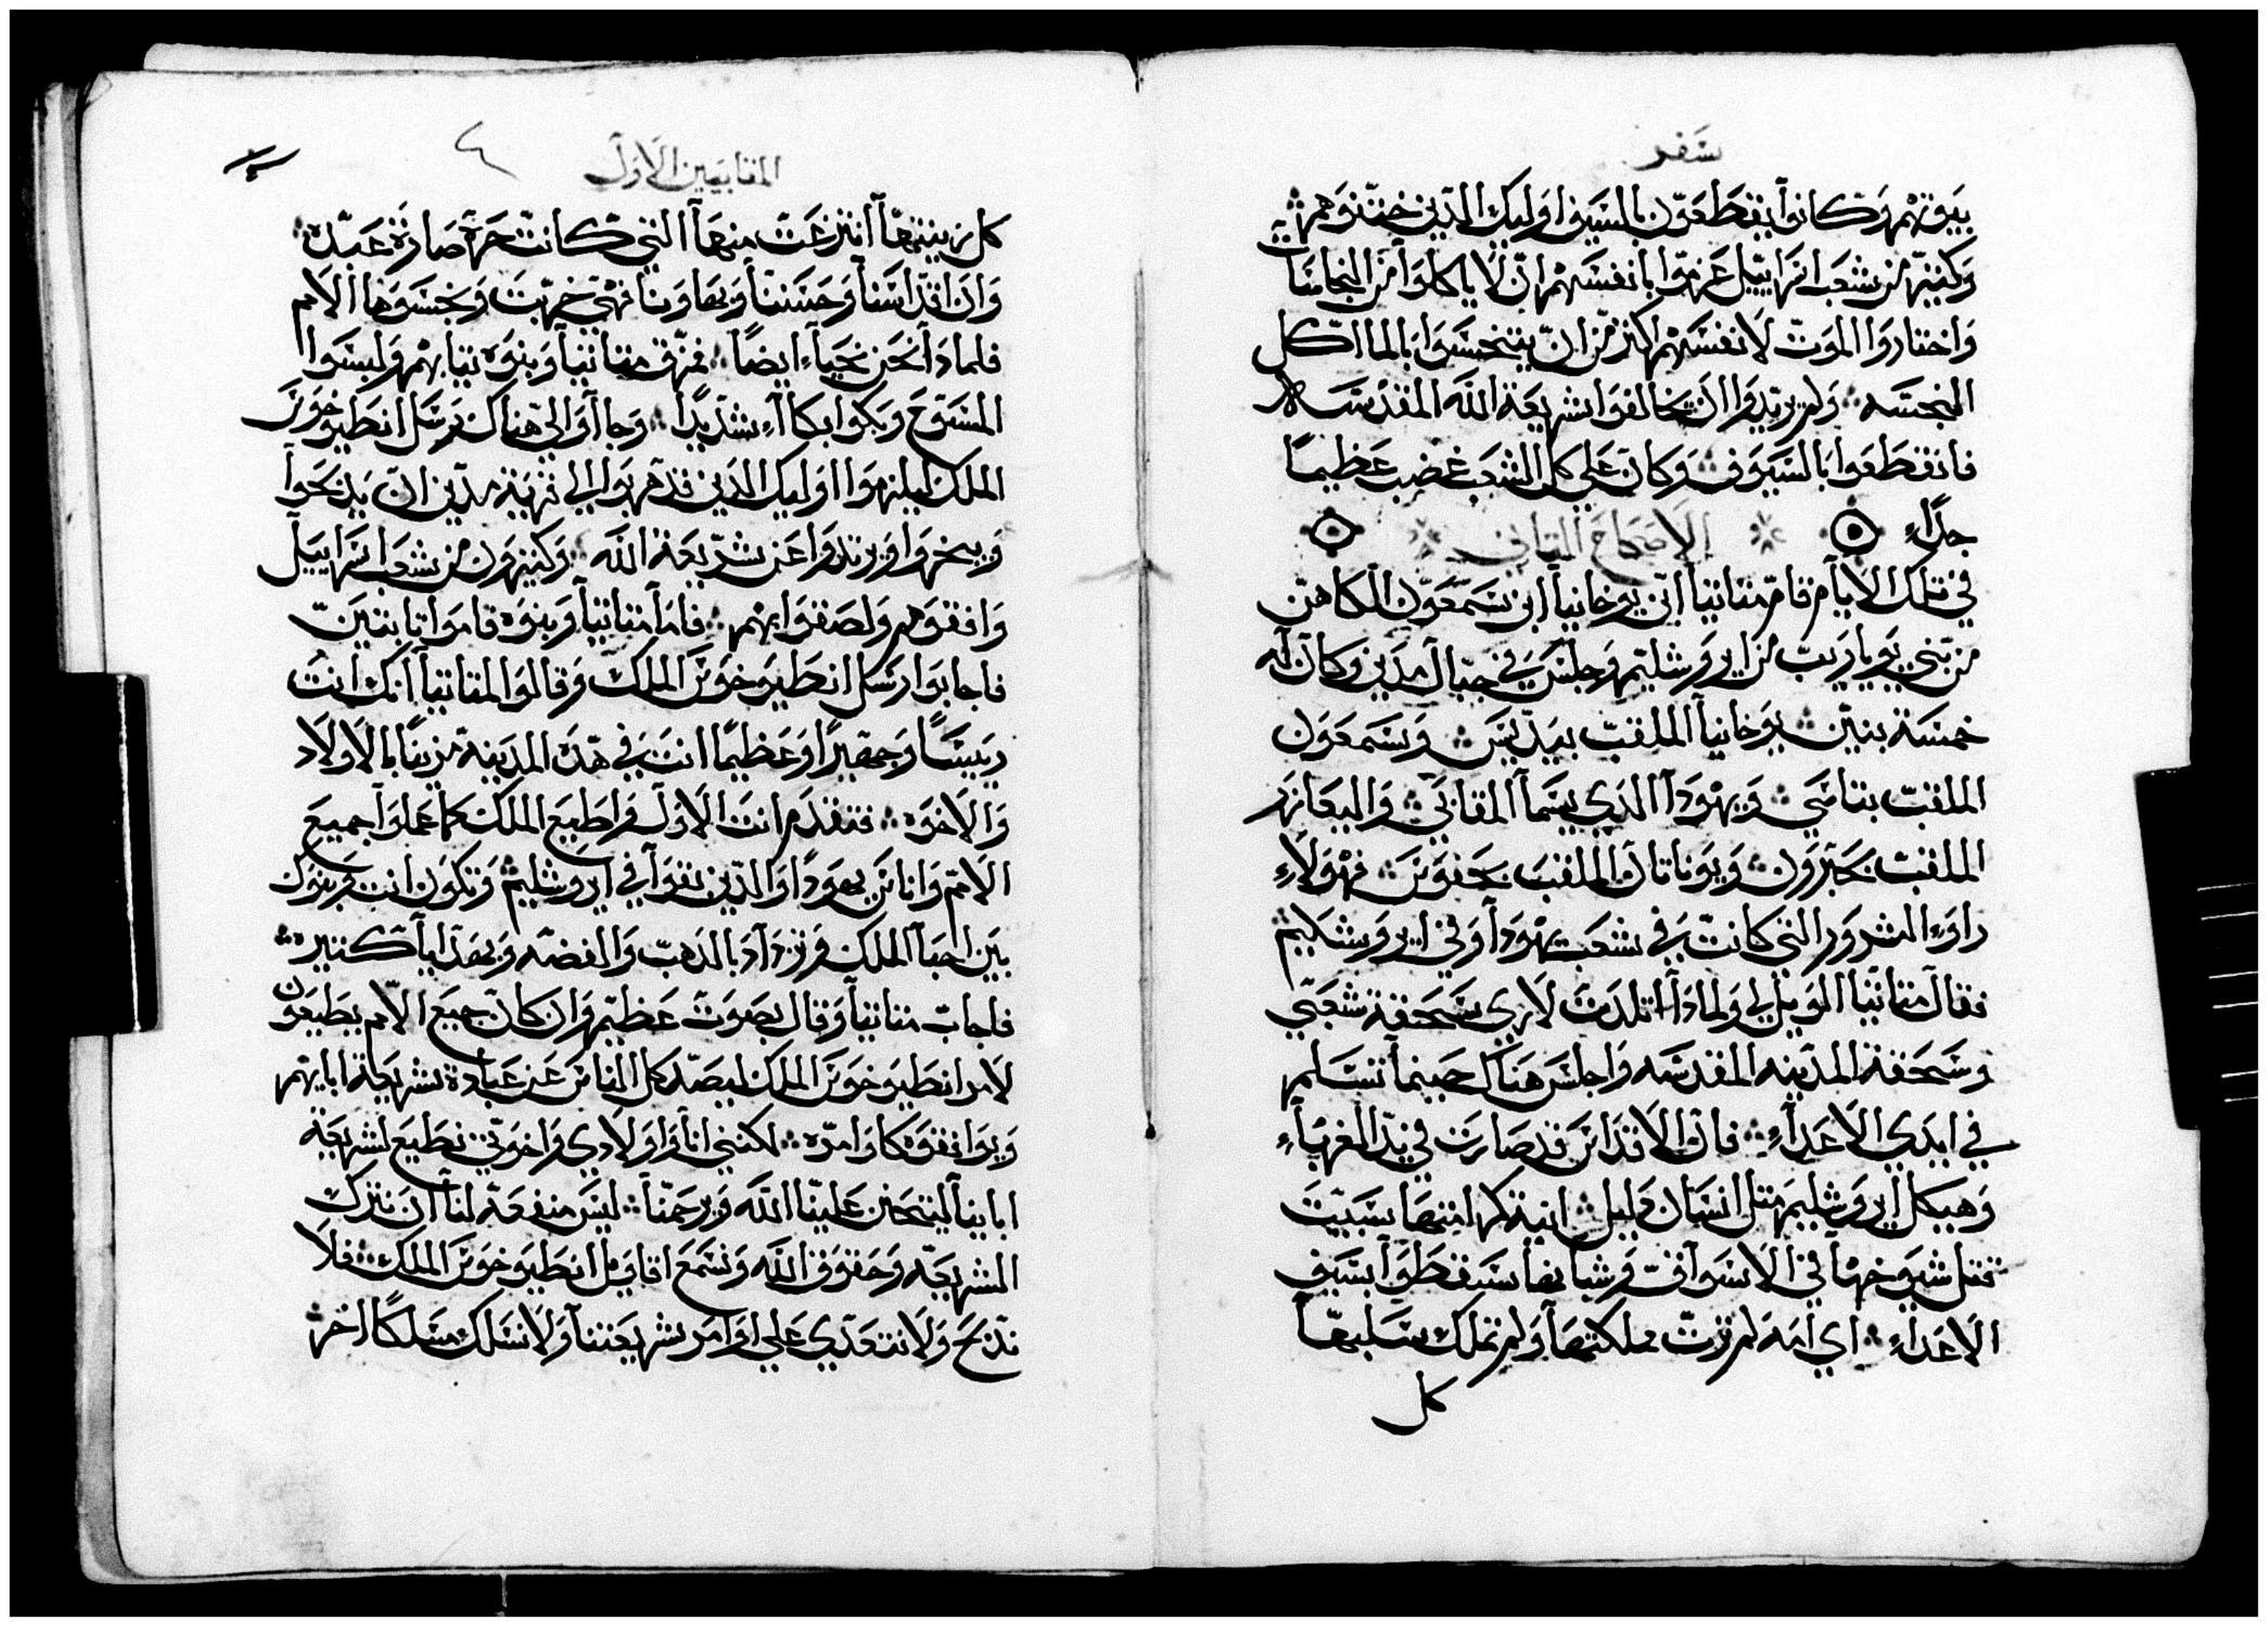 سفر
بيوتهم وكانوا يقطعون بالسيف اوليك الذين ختنوهم
وكثير من شعب اسراييل عزموا بانفسهم ان لا ياكلوا من النجاسات
واختاروا الموت لانفسهم اكثر من ان يتنجسوا بالماكل
النجسه ولم يريدوا ان يخالفوا شريعة الله المقدسه
فانقطعوا بالسيوف وكان علي كل الشعب غضب عظيما
جداء الاصحاح التاني
في تلك الايام قام متاتيا ابن يوخانيا ابن سمعون الكاهن
من بني يوياريب من ايروشليم وجلس في جبال مدين وكان له
خمسة بنين يوخانيا الملقب بيديس وسمعون
الملقب بتاسي ويهودا الذي يسما المقابي واليعازر
الملقب بحبرون ويوناتان الملقب بحفوس فهولاء
راوء الشرور التي كانت في شعب يهودا وفي ايروشليم
فقال متاتيا الويل لي ولماذا اتلدت لاري سحقة شعبي
وسحقة المدينه المقدسه واجلس هناك حينما تتسلم
في ايدي الاعداء فان الاقداس قد صارت في يد الغرباء
وهيكل ايروشليم متل انسان دليل انية كرامتها سبيت
قتل شيوخها في الاسواق وشبانها سقطوا بسيف
الاعداء اي امه لم ترت مملكتها ولم تملك سلبها
كل
المقابيين الاول
٤
كل زينتها انتزعت منها التي كانت حرة صارة عبده
وان اقداسنا وحسننا وبهاونا فهي خربت ونجسوها الامم
فلماذا نحن نحياء ايضاً فمزق متاتيا وبنوه تيابهم ولبسوا
المسوح وبكوا بكاآء شديداً وجااوا الي هناك رسل انطيوخوس
الملك ليلزموا اوليك الذين قد هربوا الي قرية مدين ان يدبحوا
ويبخروا ويرتدوا عن شريعة الله وكتيرون من شعب اسراييل
وافقوهم ولصقوا بهم فاما متاتيا وبنوه قاموا تابتين
فاجابوا رسل انطيوخوس الملك وقالوا لمتاتيا انك انت
رييساً وجهيراً وعظيماً انت في هذه المدينة مزيناً بالاولاد
والاخوه فتقدم انت الاول واطيع الملك كما عملوا جميع
الامم واناس يهودا والذين بقوا في ايروشليم وتكون انت وبنوك
بين احبا الملك وتزداد بالذهب والفضه وبهدايا كتيره
فاجاب متاتيا وقال بصوت عظيم وان كان جميع الامم يطيعون
لامر انطيوخوس الملك ليصد كل الناس عن عبادة شريعة ابايهم
ويوافقوه كاوامره لكنني انا واولادي واخوتي نطيع لشريعة
ابايينا ليتحنن علينا الله ويرحمنا ليس منفعة لنا ان نترك
الشريعه وحقوق الله ونسمع اقاويل انطيوخوس الملك فلا
ندبح ولا نتعدي علي اوامر شريعتنا ولا نسلك مسلكاً اخر